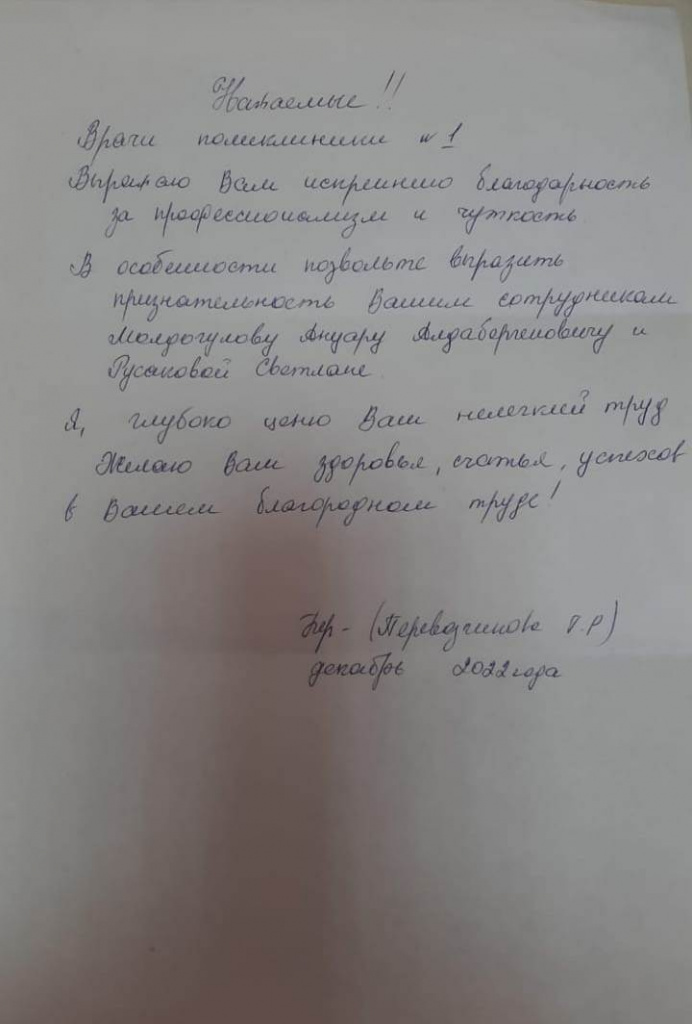 Уважаемые!!
Врачи поликлиники №1
Выражаю Вам искреннюю благодарность
за профессионализм и чуткость.
В особенности позвольте выразить
признательность Вашим сотрудникам
Молдогулову Ануару Алдабергеновичу и
Русаковой Светлане.
Я, глубоко ценю Ваш нелегкий труд
Желаю Вам здоровья, счастья, успехов
в Вашем благородном труде!
(Перевозчикова Г.Р)
декабрь 2022 года